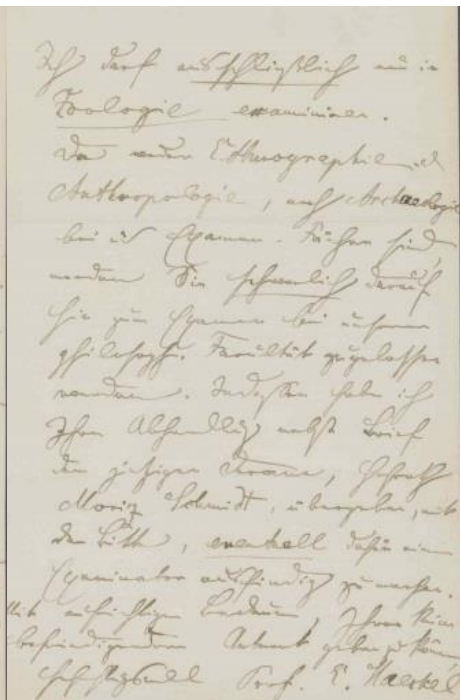 Ich darf ausschließlich nur in
Zoologie examiniren.
Da weder Ethnographie, noch
Anthropologie, noch Archaeologie
bei uns Examen-Fächer sind,
werden Sie schwerlich darauf
hin zum Examen bei unserer
philosoph. Facultät zugelassen
werden. Indessen habe ich
Ihre Abhandlung nebst Brief
dem jetzigen Decan, Hofrath
Moriz Schmidt, übergeben, mit
der Bitte, eventuell dafür einen
Examinator ausfindig zu machen.
Mit aufrichtigem Bedauern, Ihnen keine
befriedigendere Antwort geben zu können
hochachtungsvoll Prof. E. Haeckel